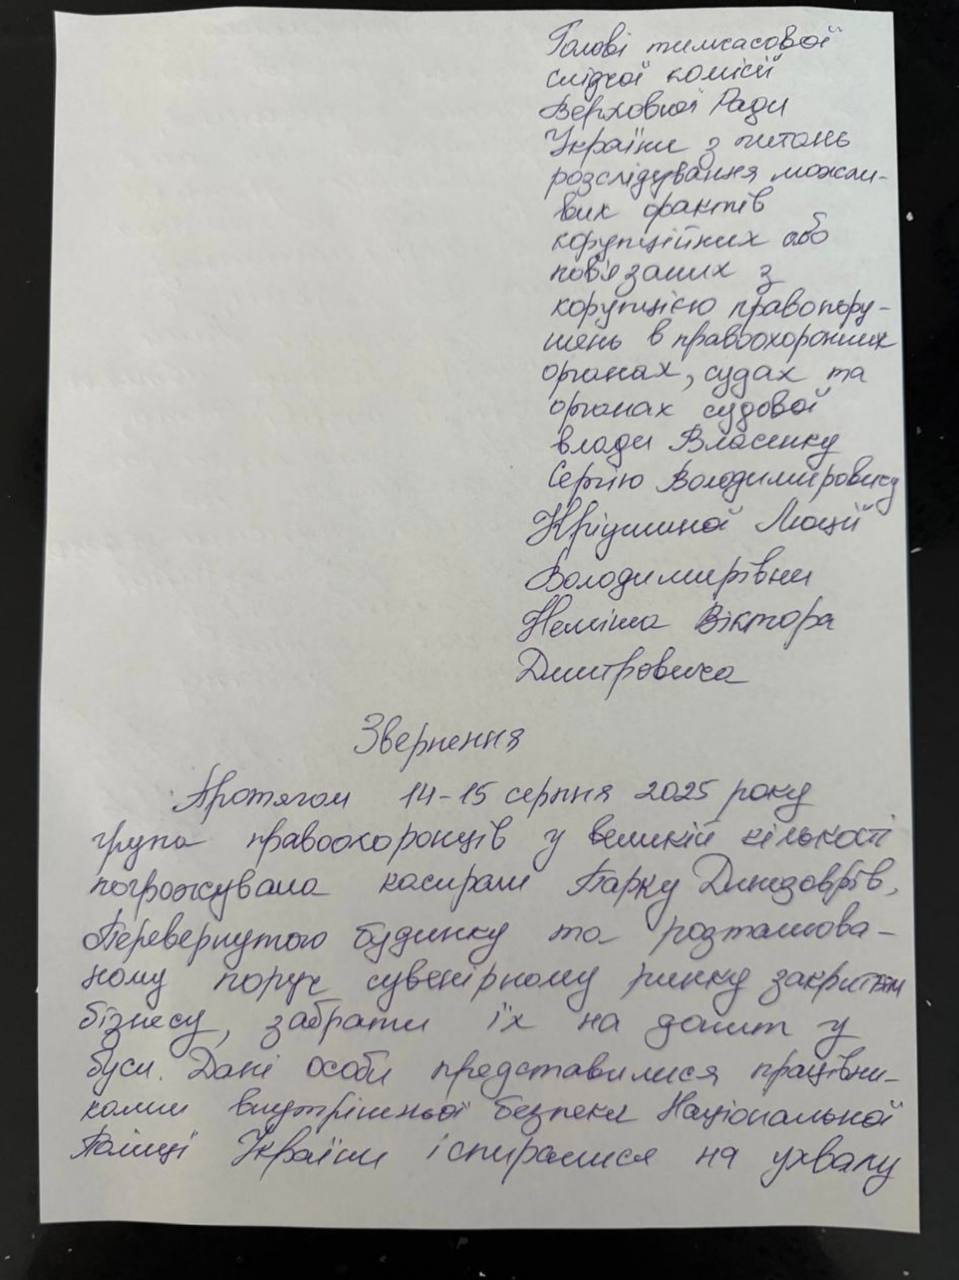 Голові тимчасової
слідчої комісії
Верховної Ради
України з питань
розслідування можли-
вих фактів
корупційних або
пов'язаних з
корупцією правопору-
шень в правоохоронних
органах, судах та
органах судової
влади Власенку
Сергію Володимировичу
Володимирівни
Віктора
Дмитровича
Звернення
Протягом 14-15 серпня 2025 року
група правоохоронців у великій кількості
погрожувала касирам Парку Динозаврів,
Перевернутого будинку та розташова-
ному поруч сувенірному ринку закриттям
бізнесу, забрати їх на допит у
буси. Дані особи представилися працівни-
ками внутрішньої безпеки Національної
Поліції України і спиралися на ухвалу